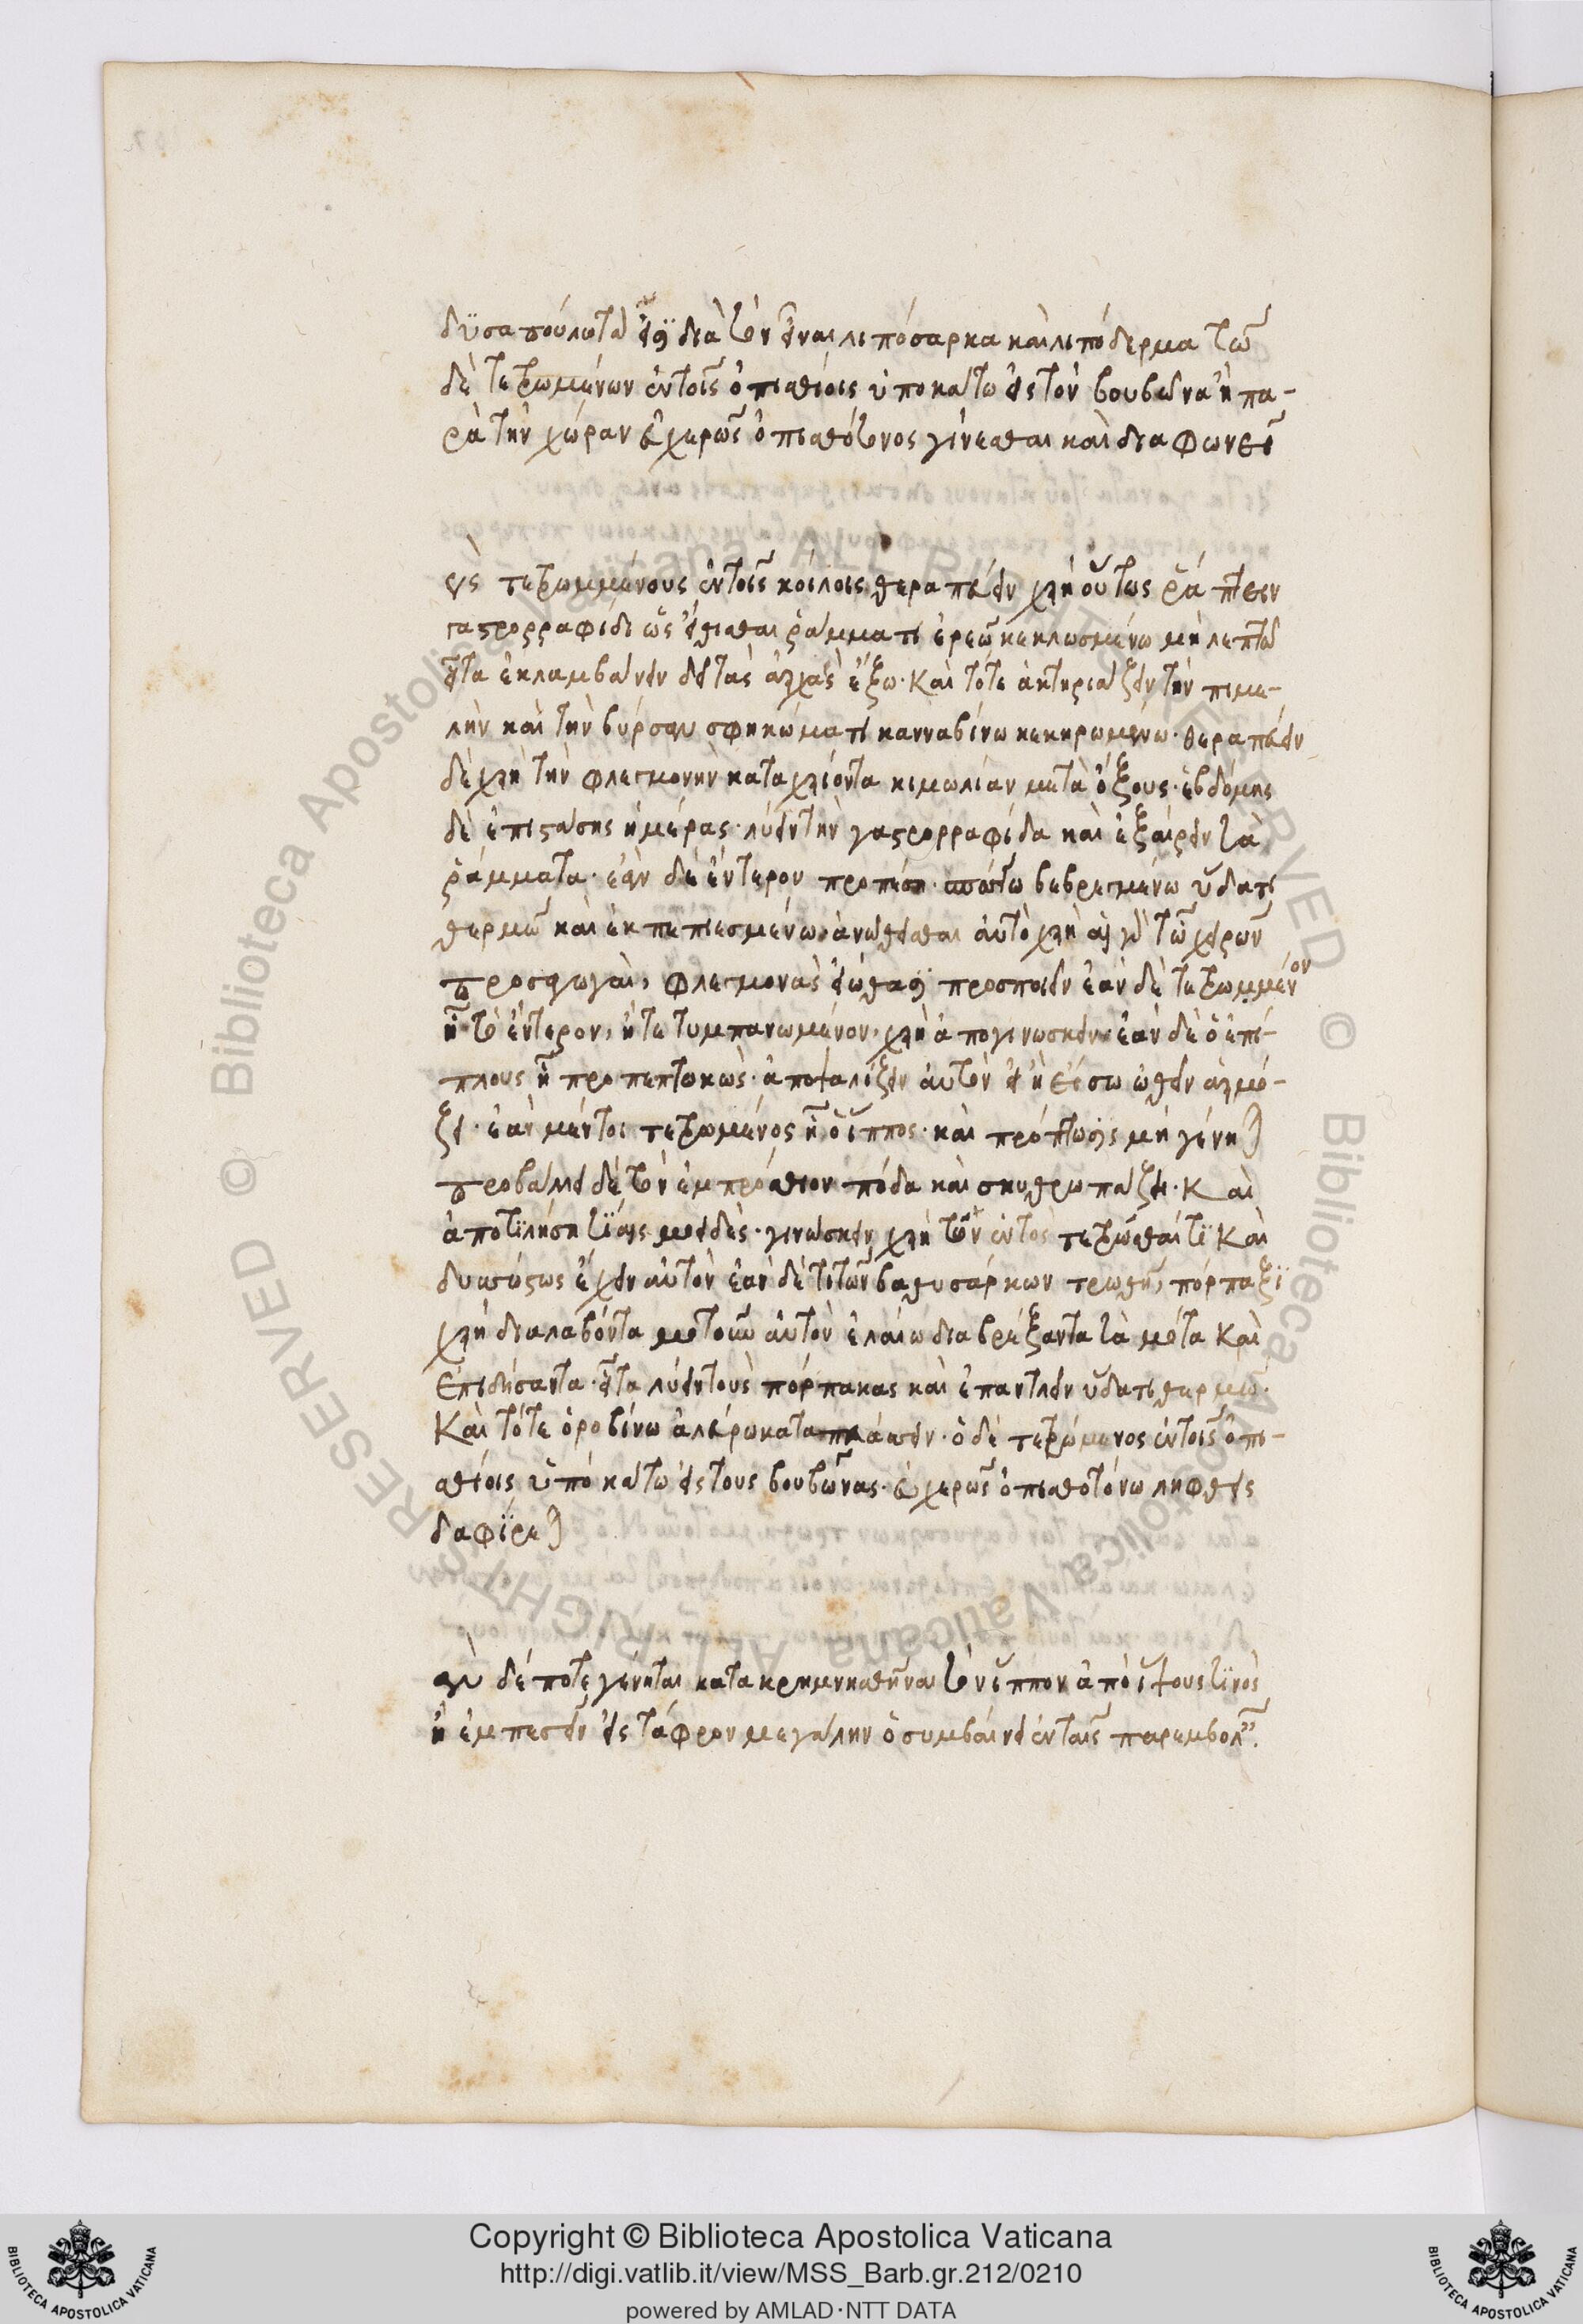 δυσαπούλωτά εἰσι διὰ τὸ εἶναι λιπόσαρκα καὶ λιπόδερμα τῶ
δὲ τετρωμένων ἐν τοῖς ὀπισθίοις ὑποκάτω εἰς τὸν βουβῶνα ἢ πα-
ρὰ τὴν χώραν εὐχερῶς ὀπισθότονος γίνεσθαι καὶ διαφωνεῖ
τετρωμμένους ἐν τοῖς κοίλοις θεραπεύειν χρὴ οὕτως ῥάπτειν
γαστρορραφίδι ὡς εἴθισθαι ῥάμματι ἐρεῶ κεκλωσμένω μὴ λεπτῶ
εἶτα ἐκλαμβάνειν δεῖ τὰς ἀρχὰς ἔξω. καὶ τότε ἀκτηριάζειν τὴν πιμε-
λὴν καὶ τὴν βύρσαν σφηκώματι κανναβίνω κεκηρωμένω. θεραπεύειν
δὲ χρὴ τὴν φλεγμονὴν καταχρίοντα κιμωλίαν μετὰ ὄξους. ἑβδόμης
δὲ ἐπιστάσης ἡμέρας. λύειν τὴν γαστρορραφίδα καὶ ἐξαίρειν τὰ
ῥάμματα. ἐὰν δὲ ἔντερον προπέση. σπόγγω βεβρεγμένω ὕδατι
θερμῶ καὶ ἐκπεπιεσμένω ἀνωθεῖσθαι αὐτὸ χρὴ αἱ γὰρ τῶν χειρῶν
προσαγωγαὶ, φλεγμονὰς εἰώθασι προσποιεῖν ἐὰν δὲ τετρωμμένον
ἦ τὸ ἔντερον, ἢ τετυμπανωμένον, χρὴ ἀπογινώσκειν. ἐὰν δὲ ὁ ἐπί-
πλους ἦ προπεπτωκὼς. ἀποψαλίζειν αὐτὸν εἰ δὲ εἴσω ὠθεῖν ἁρμό-
ζει. ἐὰν μέντοι τετρωμένος ἦ ὁ ἵππος. καὶ πρόπτωσις μὴ γένηται
προβάλλει δὲ τὸν ἐμπρόσθιον πόδα καὶ σκυθρωπάζει. Καὶ
γινώσκειν χρὴ τῶν ἐντὸς τετρῶσθαί τι Καὶ
ἔχειν αὐτὸν ἐὰν δὲ τι τῶν βαθυσάρκων τρωθῆ, πόρπαξι
χρὴ διαλαβόντα μοτοῦν αὐτὸν ἐλαίω διαβρέξαντα τὰ μότα Καὶ
ἐπιδήσαντα. εἶτα λύειν τοὺς πόρπακας καὶ ἐπαντλεῖν ὕδατι θερμῶ.
Καὶ τότε ὀροβίνω ἀλεύρω καταπλάσσειν. ὁ δὲ τετρωμένος ἐν τοῖς ὀπι-
σθίοις ὑποκάτω εἰς τοὺς βουβῶνας. εὐχερῶς ὀπισθοτόνω ληφθεὶς
διαφθείρεται
ἐὰν δέ ποτε γένηται κατακρημνισθῆναι τὸν ἵππον ἀπὸ ὕψους τινὸς
ἢ ἐμπεσεῖν εἰς τάφρον μεγάλην ὃ συμβαίνει ἐν ταῖς παρεμβολαῖς.
Copyright © Biblioteca Apostolica Vaticana
http://digi.vatlib.it/view/MSS_Barb.gr.212/0210
powered by AMLAD·NTT DATA